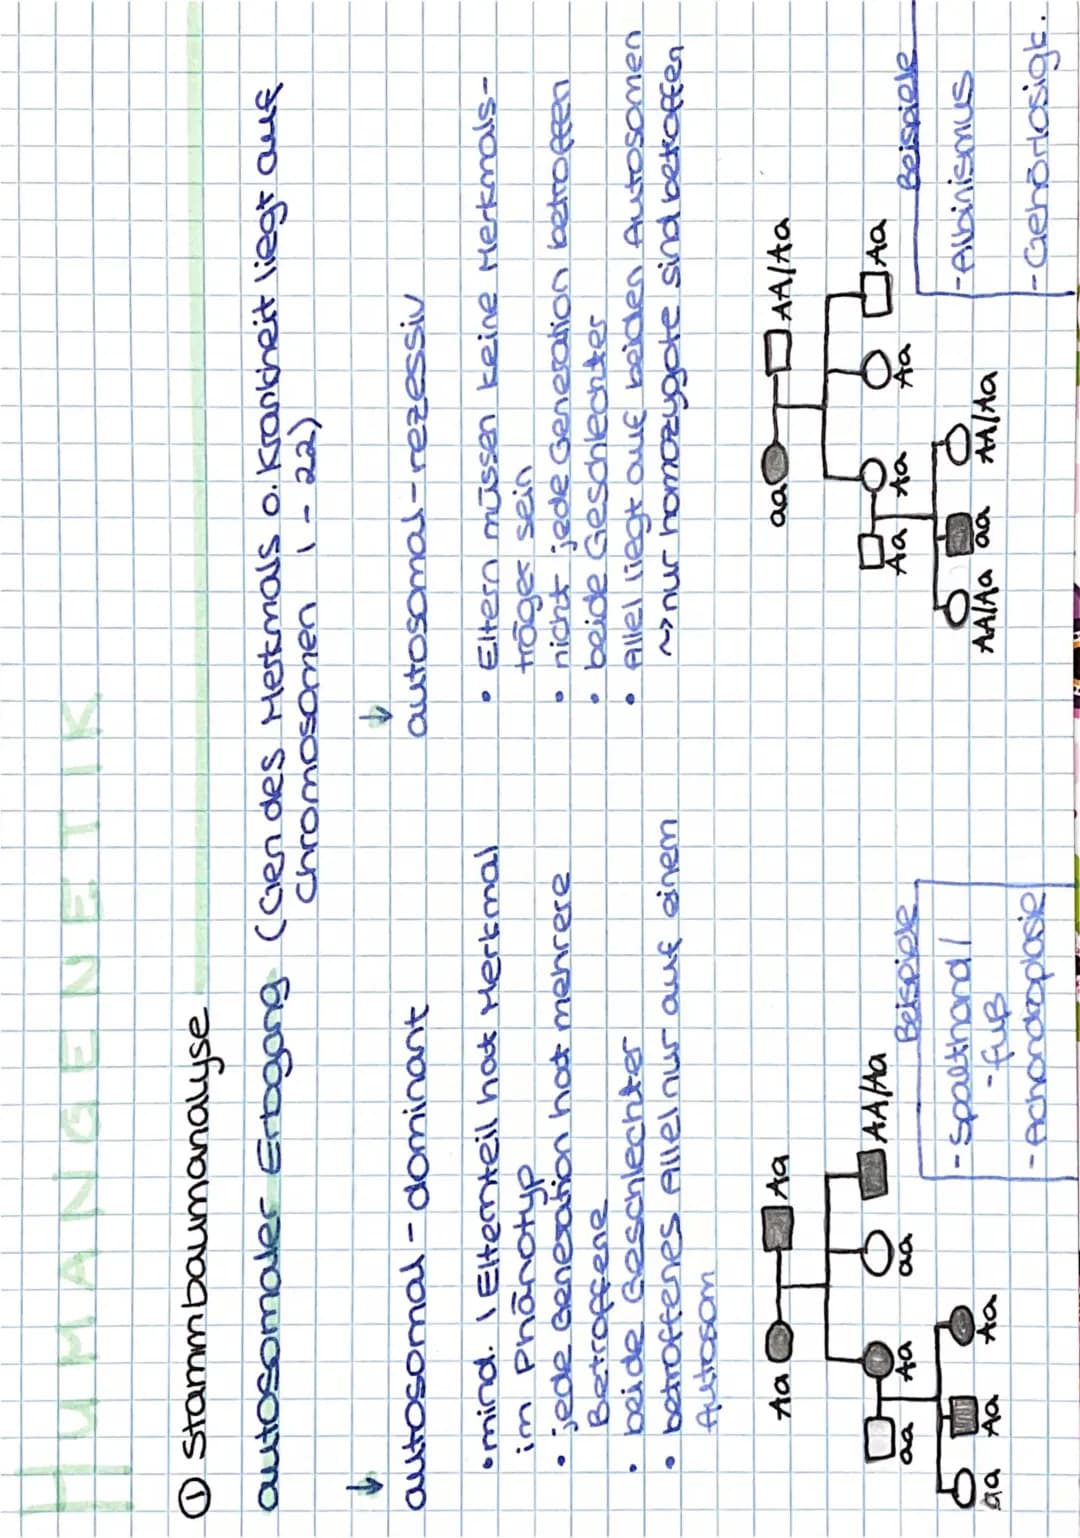 HUMANGENETIK
① Stammbaumanalyse
autosomaler Erbgang (Gen des Merkmals o. Krankheit liegt auf
Chromosomen 1 - 22)
↓
autosomal - dominant
• mind. 1 Elternteil hat Merkmal
im Phänotyp
• jede Generation hat mehrere
Betroffene
• beide Geschlechter
• betroffenes Allel nur auf einem
Autosom
Aa Aa
aa Aa aa AA/Aa
aa Aa Aa
Beispiele
- Spalthand/
- fuß
- Achondroplasie
↓
autosomal - rezessiv
• Eltern müssen keine Merkmals-
träger sein
• nicht jede Generation betroffen
• beide Geschlechter
• Allel liegt auf beiden Autosomen
~> nur homozygote sind betroffen
aa AA/Aa
Aa Aa Aa Aa
AA/Aa aa AA/Aa
Beispiele
- Albinismus
- Gehörlosigk.